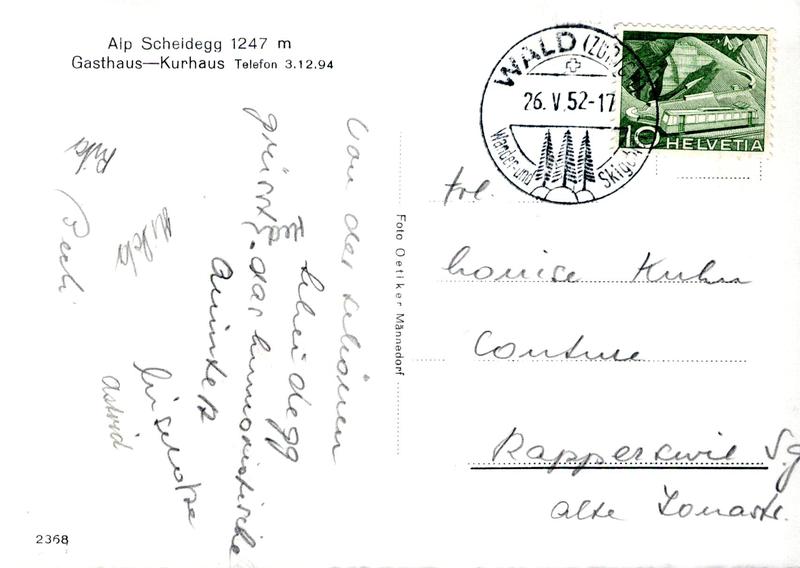 Alp Scheidegg 1247 m
Gasthaus—Kurhaus Telefon 3.12.94
Von der schönen
Scheidegg
grüsst Sie
das humoristische
Quintett
Liselotte
Astrid
Rita
Pech
2368
Foto Oetiker Männedorf
WALD (ZÜRICH)
26. V. 52-17
Wander- und Skigebiet
10 HELVETIA
Frl.
Louise Kuhn
Couture
Rapperswil Sg
alte Jonastr.